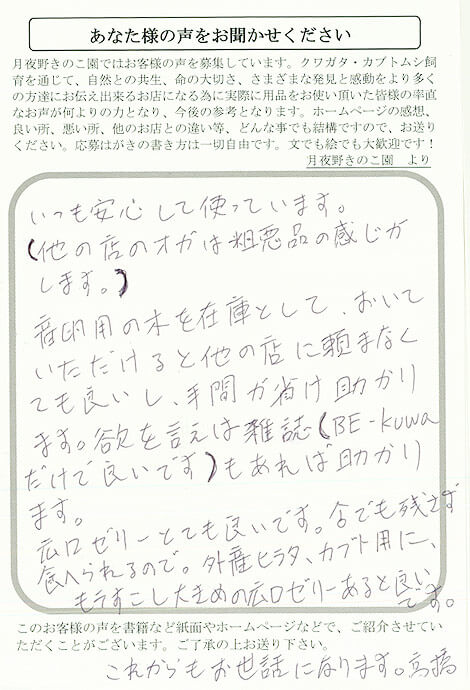 あなた様の声をお聞かせください
月夜野きのこ園ではお客様の声を募集しています。クワガタ・カブトムシ飼
育を通じて、自然との共生、命の大切さ、さまざまな発見と感動をより多く
の方達にお伝え出来るお店になる為に実際に用品をお使い頂いた皆様の率直
なお声が何よりの力となり、今後の参考となります。ホームページの感想、
良い所、悪い所、他のお店との違い等、どんな事でも結構ですので、お送り
ください。応募はがきの書き方は一切自由です。文でも絵でも大歓迎です！
月夜野きのこ園　より
いつも安心して使っています。
(他の店のオガは粗悪品の感じが
します。)
産卵用の木を在庫として、おいて
いただけると他の店に頼まなく
ても良いし、手間が省け助かり
ます。欲を言えば雑誌(BE-kuwa
だけで良いです)もあれば助かり
ます。
広口ゼリーとても良いです。虫でも残さず
食べられるので。外産ヒラタ、カブト用に、
もうすこし大きめの広口ゼリーあると良い
です。
このお客様の声を書籍など紙面やホームページなどで、ご紹介させてい
ただくことがございます。ご了承の上お送り下さい。
これからもお世話になります。高橋